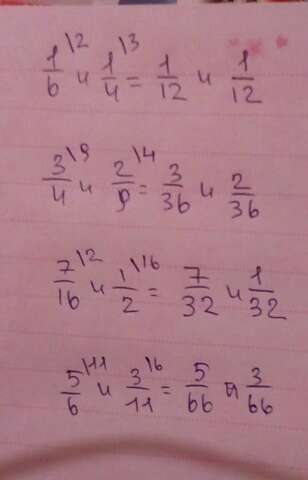 1/6 \2 и 1/4 \3 = 1/12 и 1/12
3/4 \9 и 2/9 \4 = 3/36 и 2/36
7/16 \2 и 1/2 \16 = 7/32 и 1/32
5/6 \11 и 3/11 \6 = 5/66 и 3/66